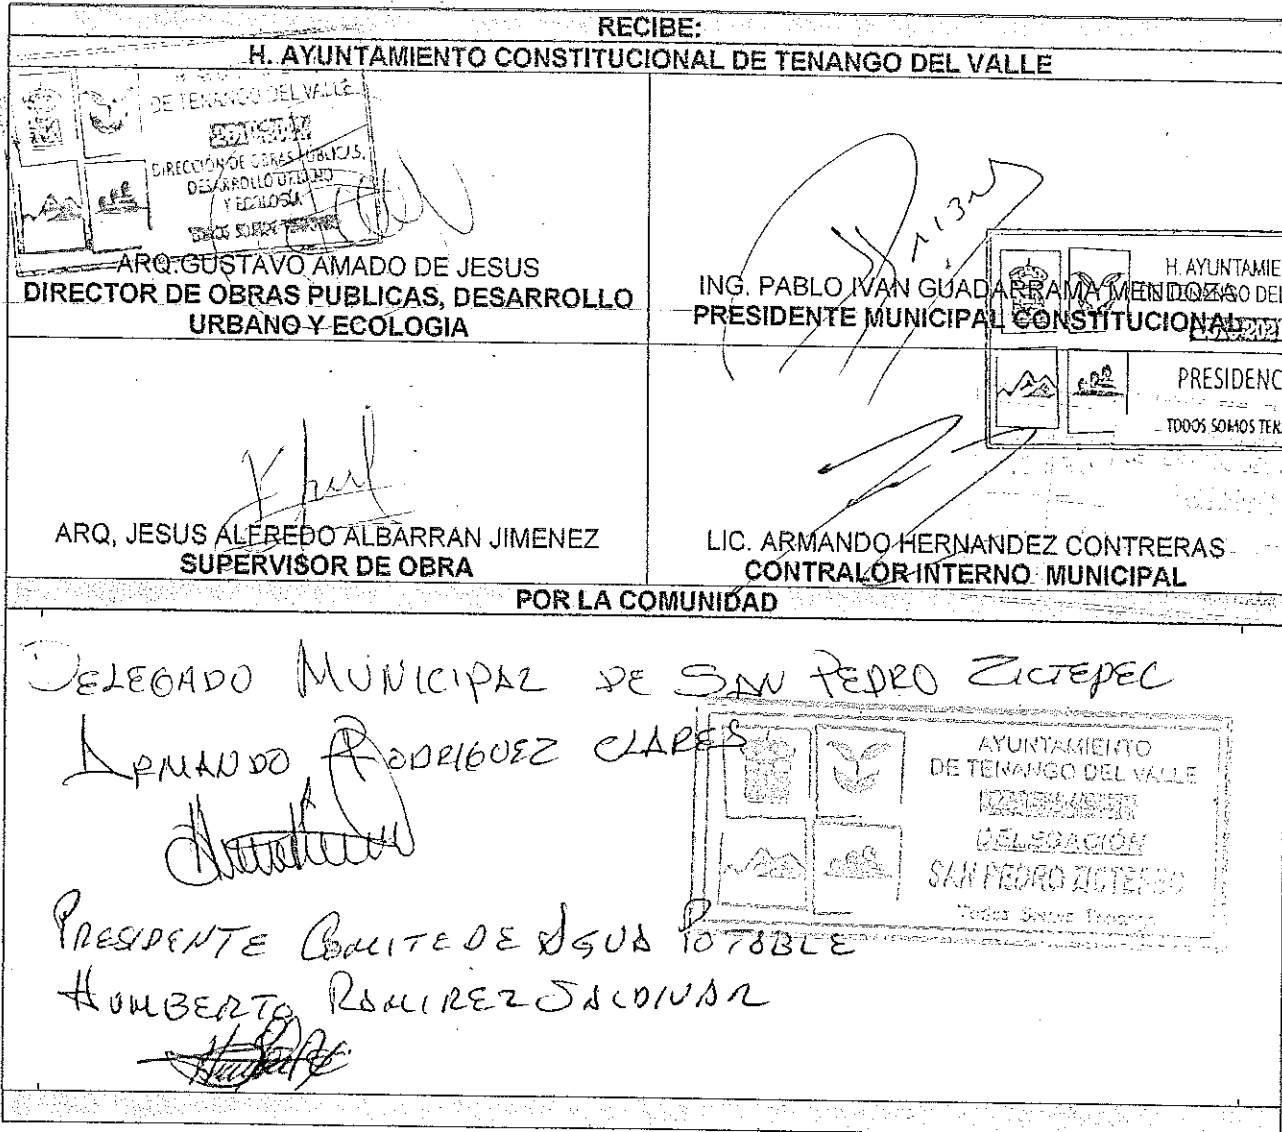 RECIBE:
H. AYUNTAMIENTO CONSTITUCIONAL DE TENANGO DEL VALLE
DE TENANGO DEL VALLE
DIRECCIÓN DE OBRAS PÚBLICAS,
DESARROLLO URBANO
Y ECOLOGÍA
ARQ.GUSTAVO AMADO DE JESUS
DIRECTOR DE OBRAS PUBLICAS, DESARROLLO
URBANO Y ECOLOGIA
H. AYUNTAMIE
ING. PABLO IVAN GUADARRAMA MENDOZA
PRESIDENTE MUNICIPAL CONSTITUCIONAL
PRESIDENC
TODOS SOMOS TEN
ARQ, JESUS ALFREDO ALBARRAN JIMENEZ
SUPERVISOR DE OBRA
LIC. ARMANDO HERNANDEZ CONTRERAS
CONTRALOR INTERNO MUNICIPAL
POR LA COMUNIDAD
DELEGADO MUNICIPAL DE SAN PEDRO ZICTEPEC
ARMANDO RODRIGUEZ CLARES
AYUNTAMIENTO
DE TENANGO DEL VALLE
DELEGACIÓN
SAN PEDRO ZICTEPEC
Todos Somos Tenango
PRESIDENTE COMITE DE AGUA POTABLE
HUMBERTO RAMIREZ SALDIVAR